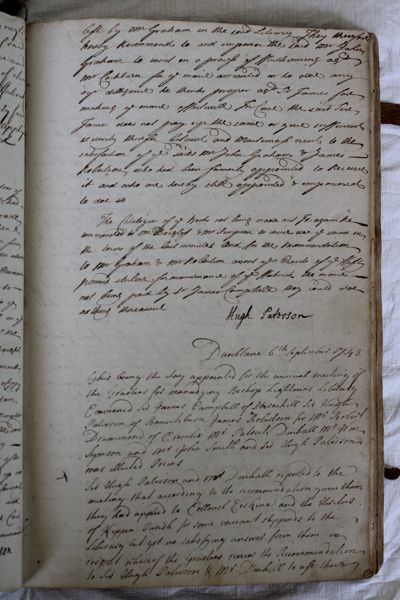 left by Mr Graham in the said Library They therefore
hereby Recommend to and impower the said Mr John
Graham to insist on a process of
Mr Cockburn for ye money or to doe any
oyr diligence he thinks proper agt Sr James for
making ye money effectuall In Case the said Sir
James does not pray up the same or give sufficient
security therefor betwixt and Martinmass next to the
satisfaction of ye saids Mr John Graham & James
Robertson, who had been formerly appointed to Receive
it and who are hereby still appointed & impowered
to doe so
The Catalogue of ye Books not being made out Its again Re
commended to Mr Douglass & Mr Simpson to cause one of them in
the terms of the last minutes And for the recommendation
to Mr Graham & Mr Robertson anent ye
for maintenance of ye Fabrick the money
not being paid by Sr James Campbell they could doe
nothing thereanent
Hugh Paterson
Dunblane 6th September 1743
Which being the day appointed for the annual meeting of
the Trustees for managing Bishop Lightouns Library
Conveened Sir James Campbell of Sir Hugh
Paterson of Bannockburn James Robertson for Mr Robert
Drummond of Cromlix Mr Patrick Duthall Mr Wm
Sympson and Mr John Smith and Sir Hugh Paterson
was elected Preses
Sir Hugh Paterson and Mr Duthall reported to the
meeting that according to the recommendation given them
they had applyed to Collonel Erskine and the Heretors
of Kippen Parish for some vacant stypends to the
Library but got no satisfying answer from them in
respect whereof the Trustees renew the Recommendation
to Sir Hugh Paterson & Mr Duthill to use their